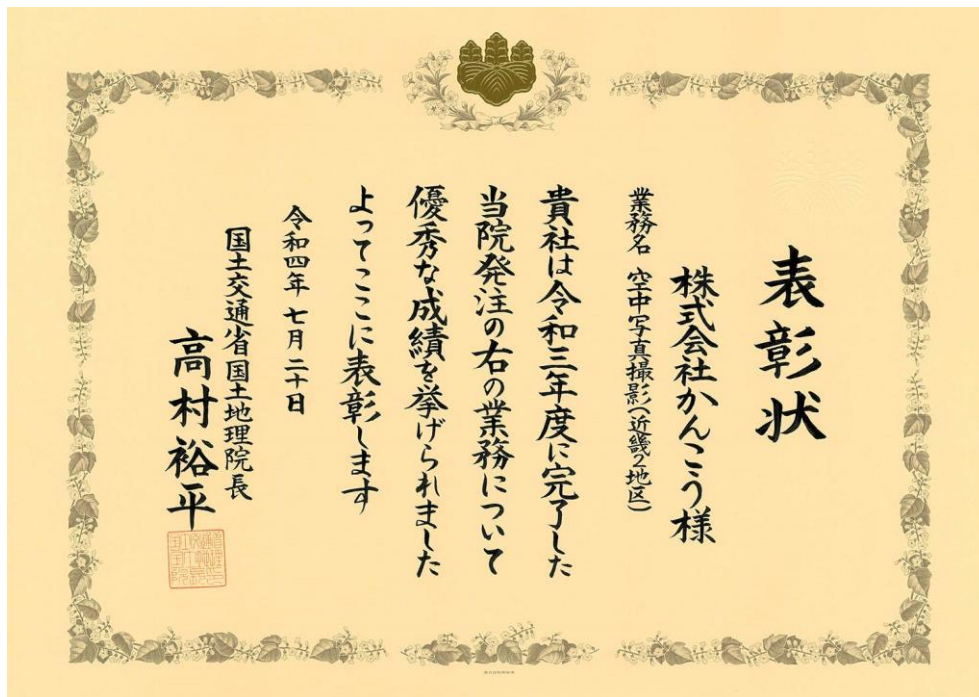 表彰状
株式会社かんこう様
業務名 空中写真撮影(近畿2地区)
貴社は令和三年度に完了した
当院発注の右の業務について
優秀な成績を挙げられました
よってここに表彰します
令和四年七月二十日
国土交通省国土地理院長
高村裕平